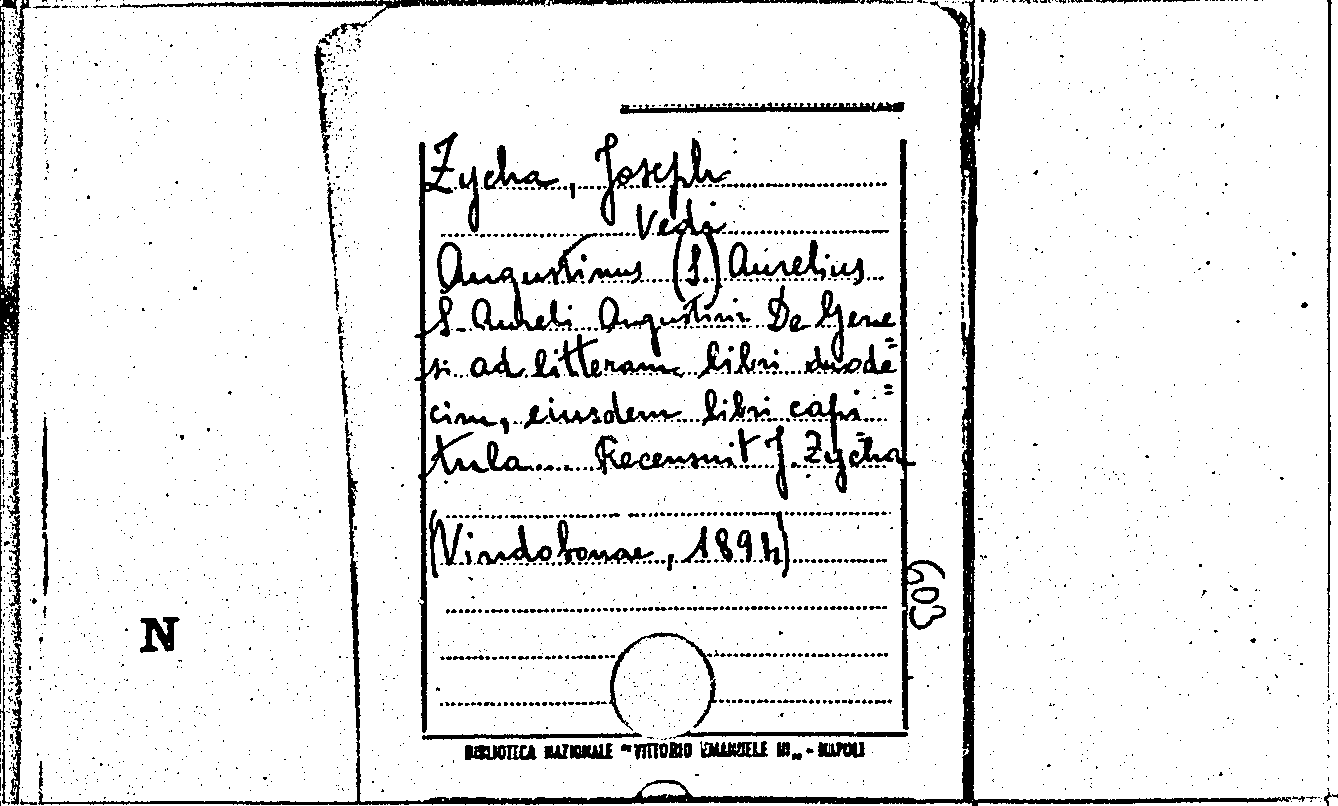 Zycha, Joseph
Vedi
Augustinus (S.) Aurelius
S. Aureli Augustini De Gene
si ad litteram libri duode=
cim, eiusdem libri capi=
tula.... Recensuit J. Zycha
(Vindobonae, 1894)
603
N
BIBLIOTECA NAZIONALE "VITTORIO EMANUELE III„ - NAPOLI